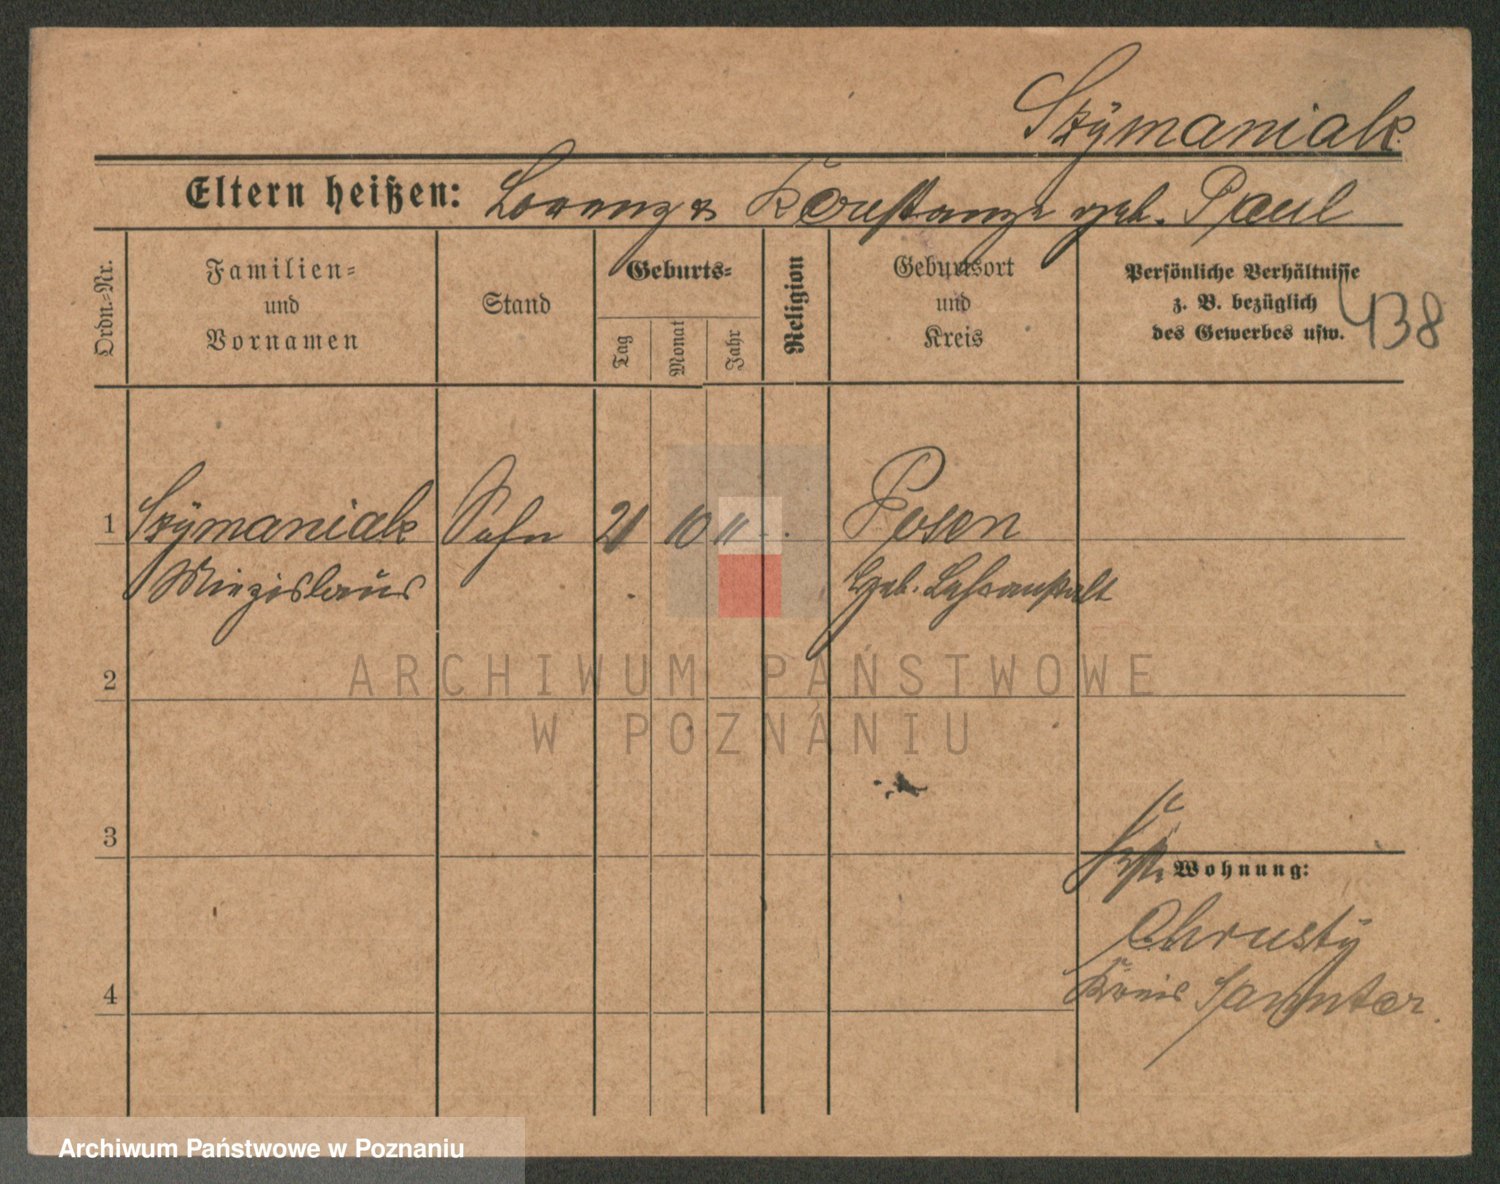 Szÿmaniak
Eltern heißen: Lorenz & Konstanze geb. Paul
Ordn.=Nr.
Familien=
und
Vornamen
Stand
Geburts=
Tag
Monat
Jahr
Religion
Geburtsort
und
Kreis
Persönliche Verhältnisse
z. B. bezüglich
des Gewerbes usw.
438
1 Szÿmaniak Sohn 21 10 11 Posen
Miezislaus Geb. Lehranstalt
2
3
4
Wohnung:
Chrustÿ
Kreis Samter.
ARCHIWUM PAŃSTWOWE
W POZNANIU
Archiwum Państwowe w Poznaniu